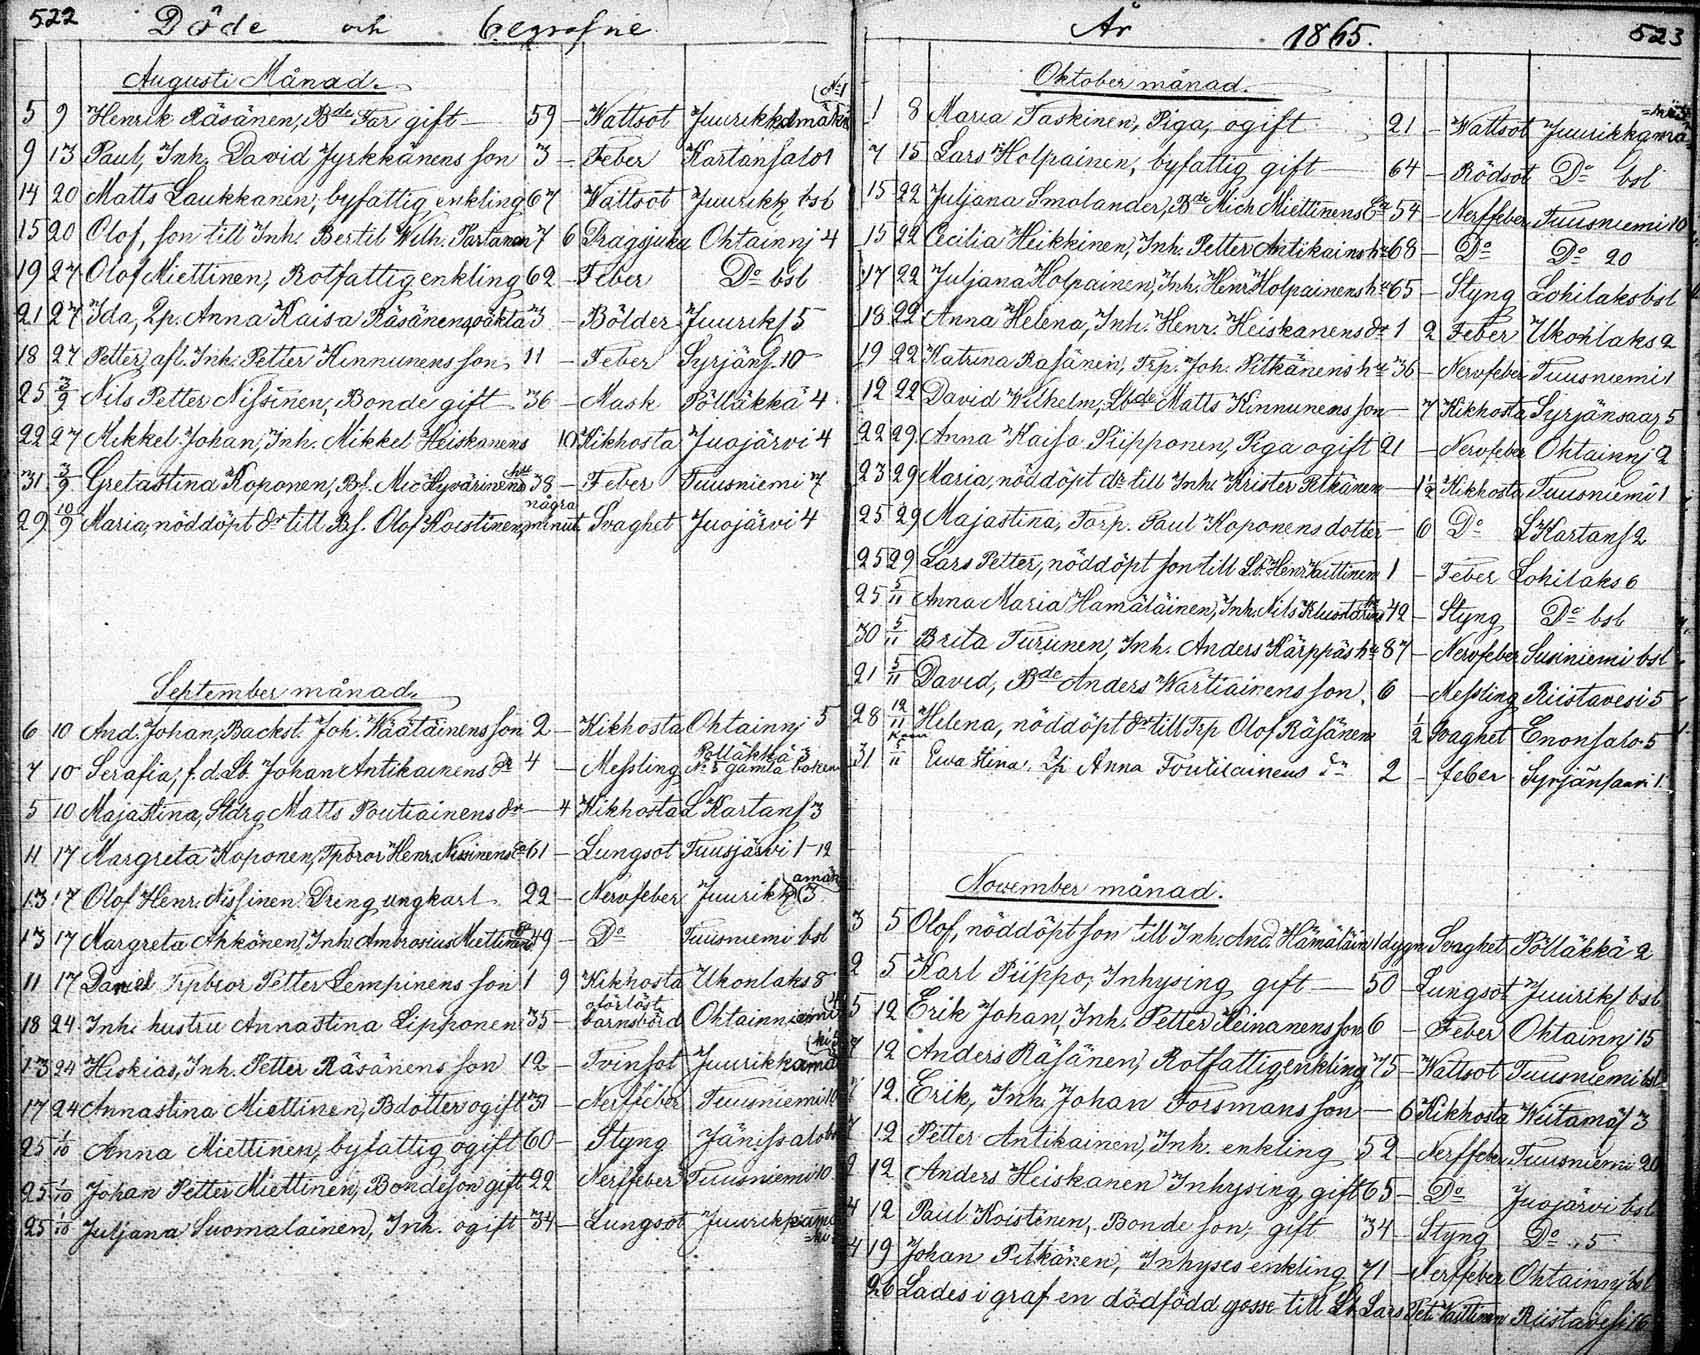 522 Döde och begrafne
Augusti Månad.
5 9 Henrik Räsänen, Bde Far gift 59 – Wattsot Juurikkamäki No 1
9 13 Paul, Inh. David Jyrkkänens son 3 – Feber Kartansalo 1
14 20 Matts Laukkanen, byfattig enkling 67 Wattsot Juurikk bsl
15 20 Olof, son till Inh. Bertil Wilh. Partanen 7 6 Dragsjuka Ohtainnj 4
19 27 Olof Miettinen, Rotfattig enkling 62 – Feber Do bsl
21 27 Ida, Lp. Anna Kaisa Räsänens oäkta 3 – Bölder Juurikf 5
18 27 Petter, afl. Inh. Petter Kinnunens son 11 – Feber Syrjäns. 10
25 3/9 Nils Petter Nissinen, Bonde gift 36 – Mask Pölläkkä 4
22 27 Mikkel Johan, Inh. Mikkel Heiskanens 10 Kikhosta Juojärvi 4
31 3/9 Gretastina Koponen, Bf. Mic Hyvärinens hu 38 – Feber Tuusniemi 7
29 10/9 Maria, nöddöpt dr till Bf. Olof Koistinen, några minut. Svaghet Juojärvi 4
September månad.
6 10 And. Johan, Backst. Joh. Wäätäinens son 2 – Kikhosta Ohtainnj 5
7 10 Serafia, f.d. Lb. Johan Antikainens dr 4 – Messling Pölläkkä 3 No 5 gamla boken
5 10 Majastina, Stdrg Matts Poutiainens dr – 4 Kikhosta L Kartans 3
11 17 Margreta Koponen, Tpbror Henr. Nissinens Ea 61 – Lungsot Tuusjärvi 1–12
13 17 Olof Henr. Nissinen Dreng ungkarl 22 – Nervfeber Juurikk amäki 3
13 17 Margreta Ahkönen, Inh. Ambrosius Miettinens Ea 49 – Do Tuusniemi bsl
11 17 Daniel Trpbror Petter Lempinens son 1 9 Kikhosta Ukonlaks 8
18 24 Inh. hustru Annastina Lipponen 35 – oförlöst barnsbörd Ohtainniemi
13 24 Hiskias, Inh. Petter Räsänens son 12 – Tvinsot Juurikkamä
17 24 Annastina Miettinen, Bdotter ogift 31 – Nerffeber Tuusniemi 10
25 1/10 Anna Miettinen, byfattig ogift 60 – Styng Jänissalo
25 1/10 Johan Petter Miettinen, Bondeson gift 22 Nerffeber Tuusniemi 10
25 1/10 Juljana Suomalainen, Inh. ogift 34 – Lungsot Juurikkamä
År 1865. 523
Oktober månad.
1 8 Maria Taskinen, Piga, ogift 21 – Wattsot Juurikkamä
7 15 Lars Holpainen, byfattig gift 64 – Rödsot Do bsl
15 22 Juljana Smolander, Bde Mich Miettinens Ea 54 – Nerffeber Tuusniemi 10
15 22 Cecilia Heikkinen, Inh. Petter Antikains hu 68 – Do Do 20
17 22 Juljana Holpainen, Inh. Henr Holpainens hu 65 – Styng Lohilaks bsl
18 22 Anna Helena, Inh. Henr. Heiskanens dr 1 2 Feber Ukonlaks 2
19 22 Katrina Räsänen, Trp. Joh. Pitkänens hu 36 – Nervfeber Tuusniemi 1
12 22 David Wilhelm, Lbde Matts Kinnunens son – 7 Kikhosta Syrjänsaar 5
22 29 Anna Kaisa Piipponen, Piga ogift 21 – Nervfeber Ohtainnj 2
23 29 Maria, nöddöpt dr till Inh Krister Pitkänen – 1 1/2 Kikhosta Tuusniemi 1
25 29 Majastina, Torp. Paul Koponens dotter – 6 Do L Kartans 2
25 29 Lars Petter, nöddöpt son till Lb. Henr Vaittinen 1 – Feber Lohilaks 6
25 5/11 Anna Maria Hämäläinen, Inh. Nils 42 – Styng Do bsl
30 5/11 Brita Turunen, Inh. Anders Kärppäs hu 87 – Nervfeber Susiniemi bsl
21 5/11 David, Bde Anders Wartiainens son. 6 – Messling Riistavesi 5
28 12/11 Helena, nöddöpt dr till Trp Olof Räsänen 1/2 Svaghet Enonsalo 5
31 5/11 Ewa Stina, Lp Anna Foutilainens dr 2 – feber Syrjänsaari 1
November månad.
3 5 Olof, nöddöpt son till Inh. And. Hämäläin 1 dygn Svaghet Pölläkkä 2
2 5 Karl Piippo, Inhysing gift – 50 – Lungsot Juurikf bsl
5 12 Erik Johan, Inh. Petter Heinanens son 6 – Feber Ohtainnj 15
7 12 Anders Räsänen, Rotfattig enkling 75 – Wattsot Tuusniemi bsl
12. Erik, Inh. Johan Forsmans son – 6 Kikhosta Wiitamäf 3
7 12 Petter Antikainen, Inh. enkling 52 – Nerffeber Tuusniemi 20
9 12 Anders Heiskanen Inhysing gift 65 – Do Juojärvi bsl
4 12 Paul Koistinen, Bonde son, gift 34 – Styng Do 5
14 19 Johan Pitkänen, Inhyses enkling 71 – Nerffeber Ohtainnj bsl
26 Lades i graf en dödfödd gosse till Lb Lars Pet. Vaittinen Riistavesi 16